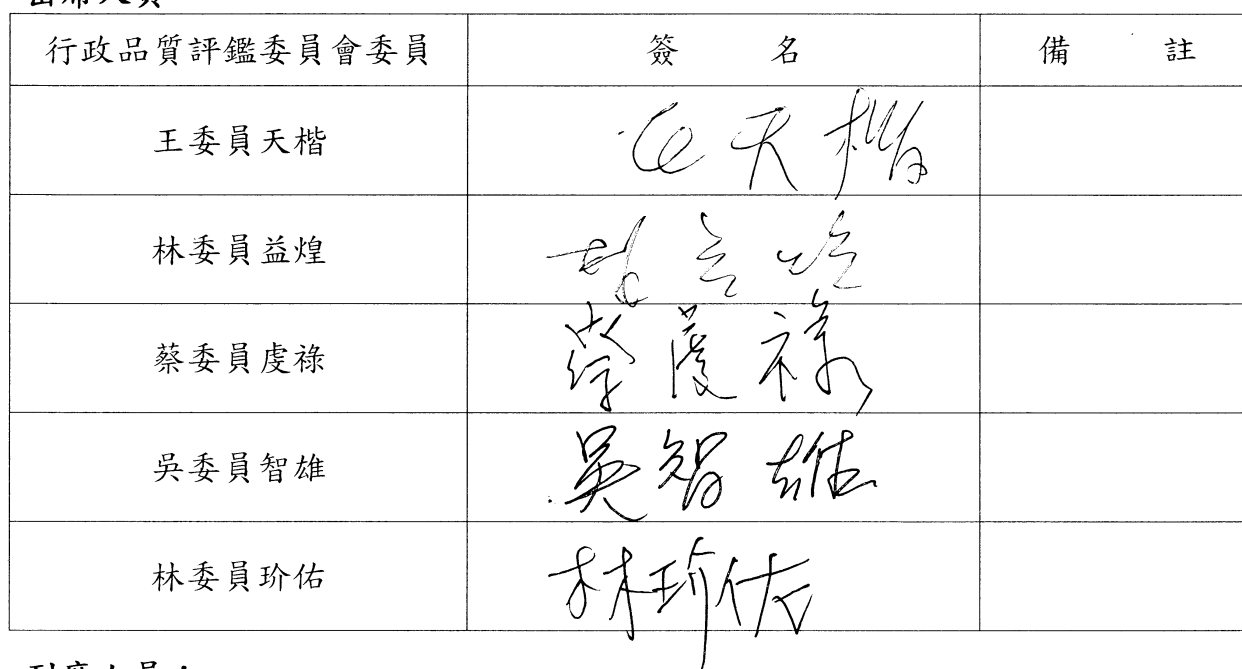 出席人員
行政品質評鑑委員會委員 簽 名 備 註
王委員天楷 王天楷
林委員益煌 林益煌
蔡委員虔祿 蔡虔祿
吳委員智雄 吳智雄
林委員玠佑 林玠佑
列席人員：